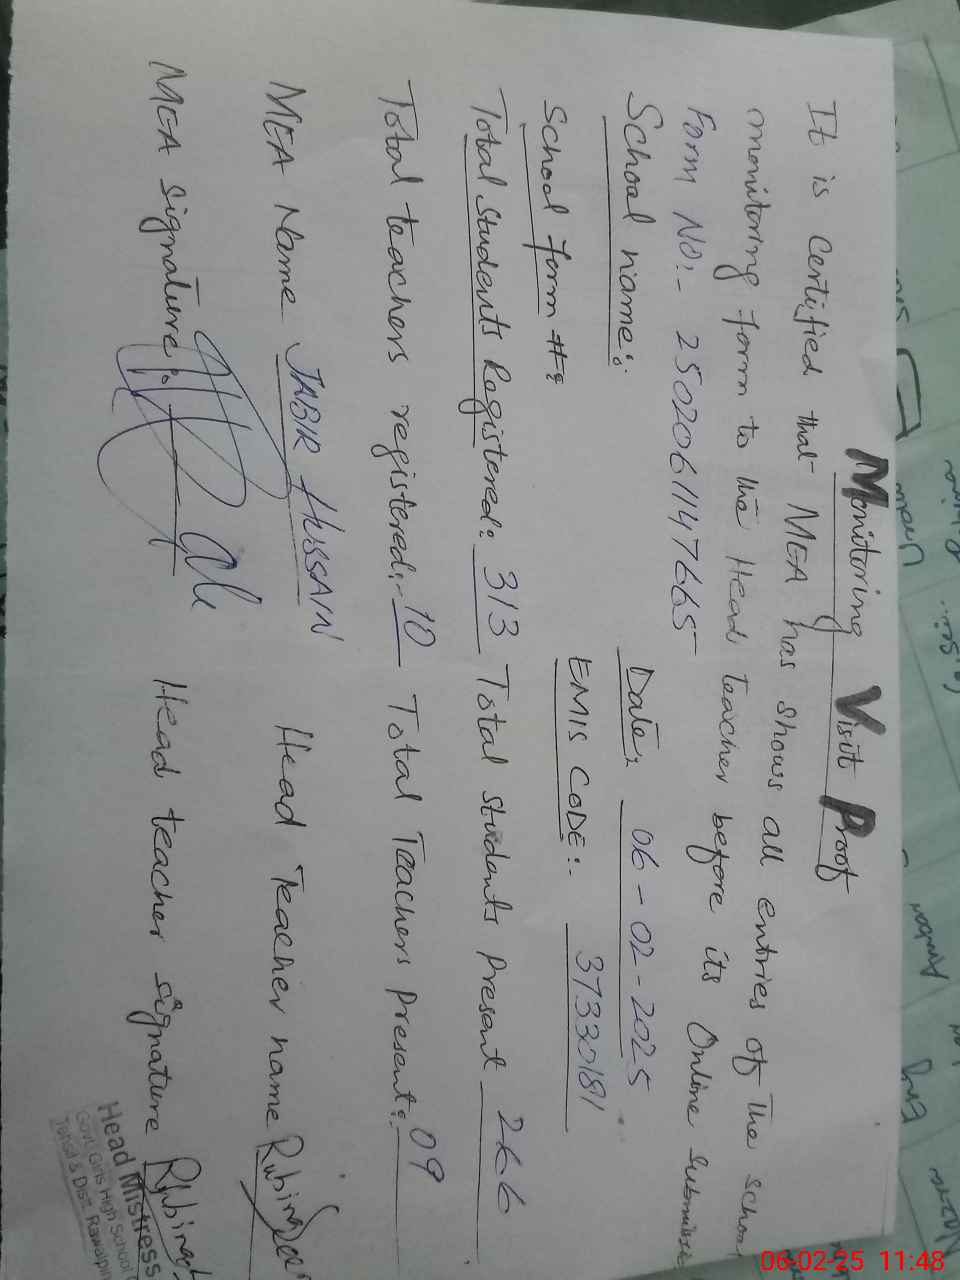 Monitoring Visit Proof
It is certified that MEA has shows all entries of the school
monitoring form to the Head teacher before its Online submissie
Form No:- 25020611147665
School name:. Date: 06-02-2025
School form #: EMIS CODE:. 37330181
Total students Registered: 313 Total students present 266
Total teachers registered:- 10 Total Teachers present: 09
MEA Name JABIR HUSSAIN Head Teacher name
MEA signature: Head teacher signature
Head Mistress
Govt. Girls High School
Tehsil & Distt. Rawalpin
Eng
06-02-25 11:48